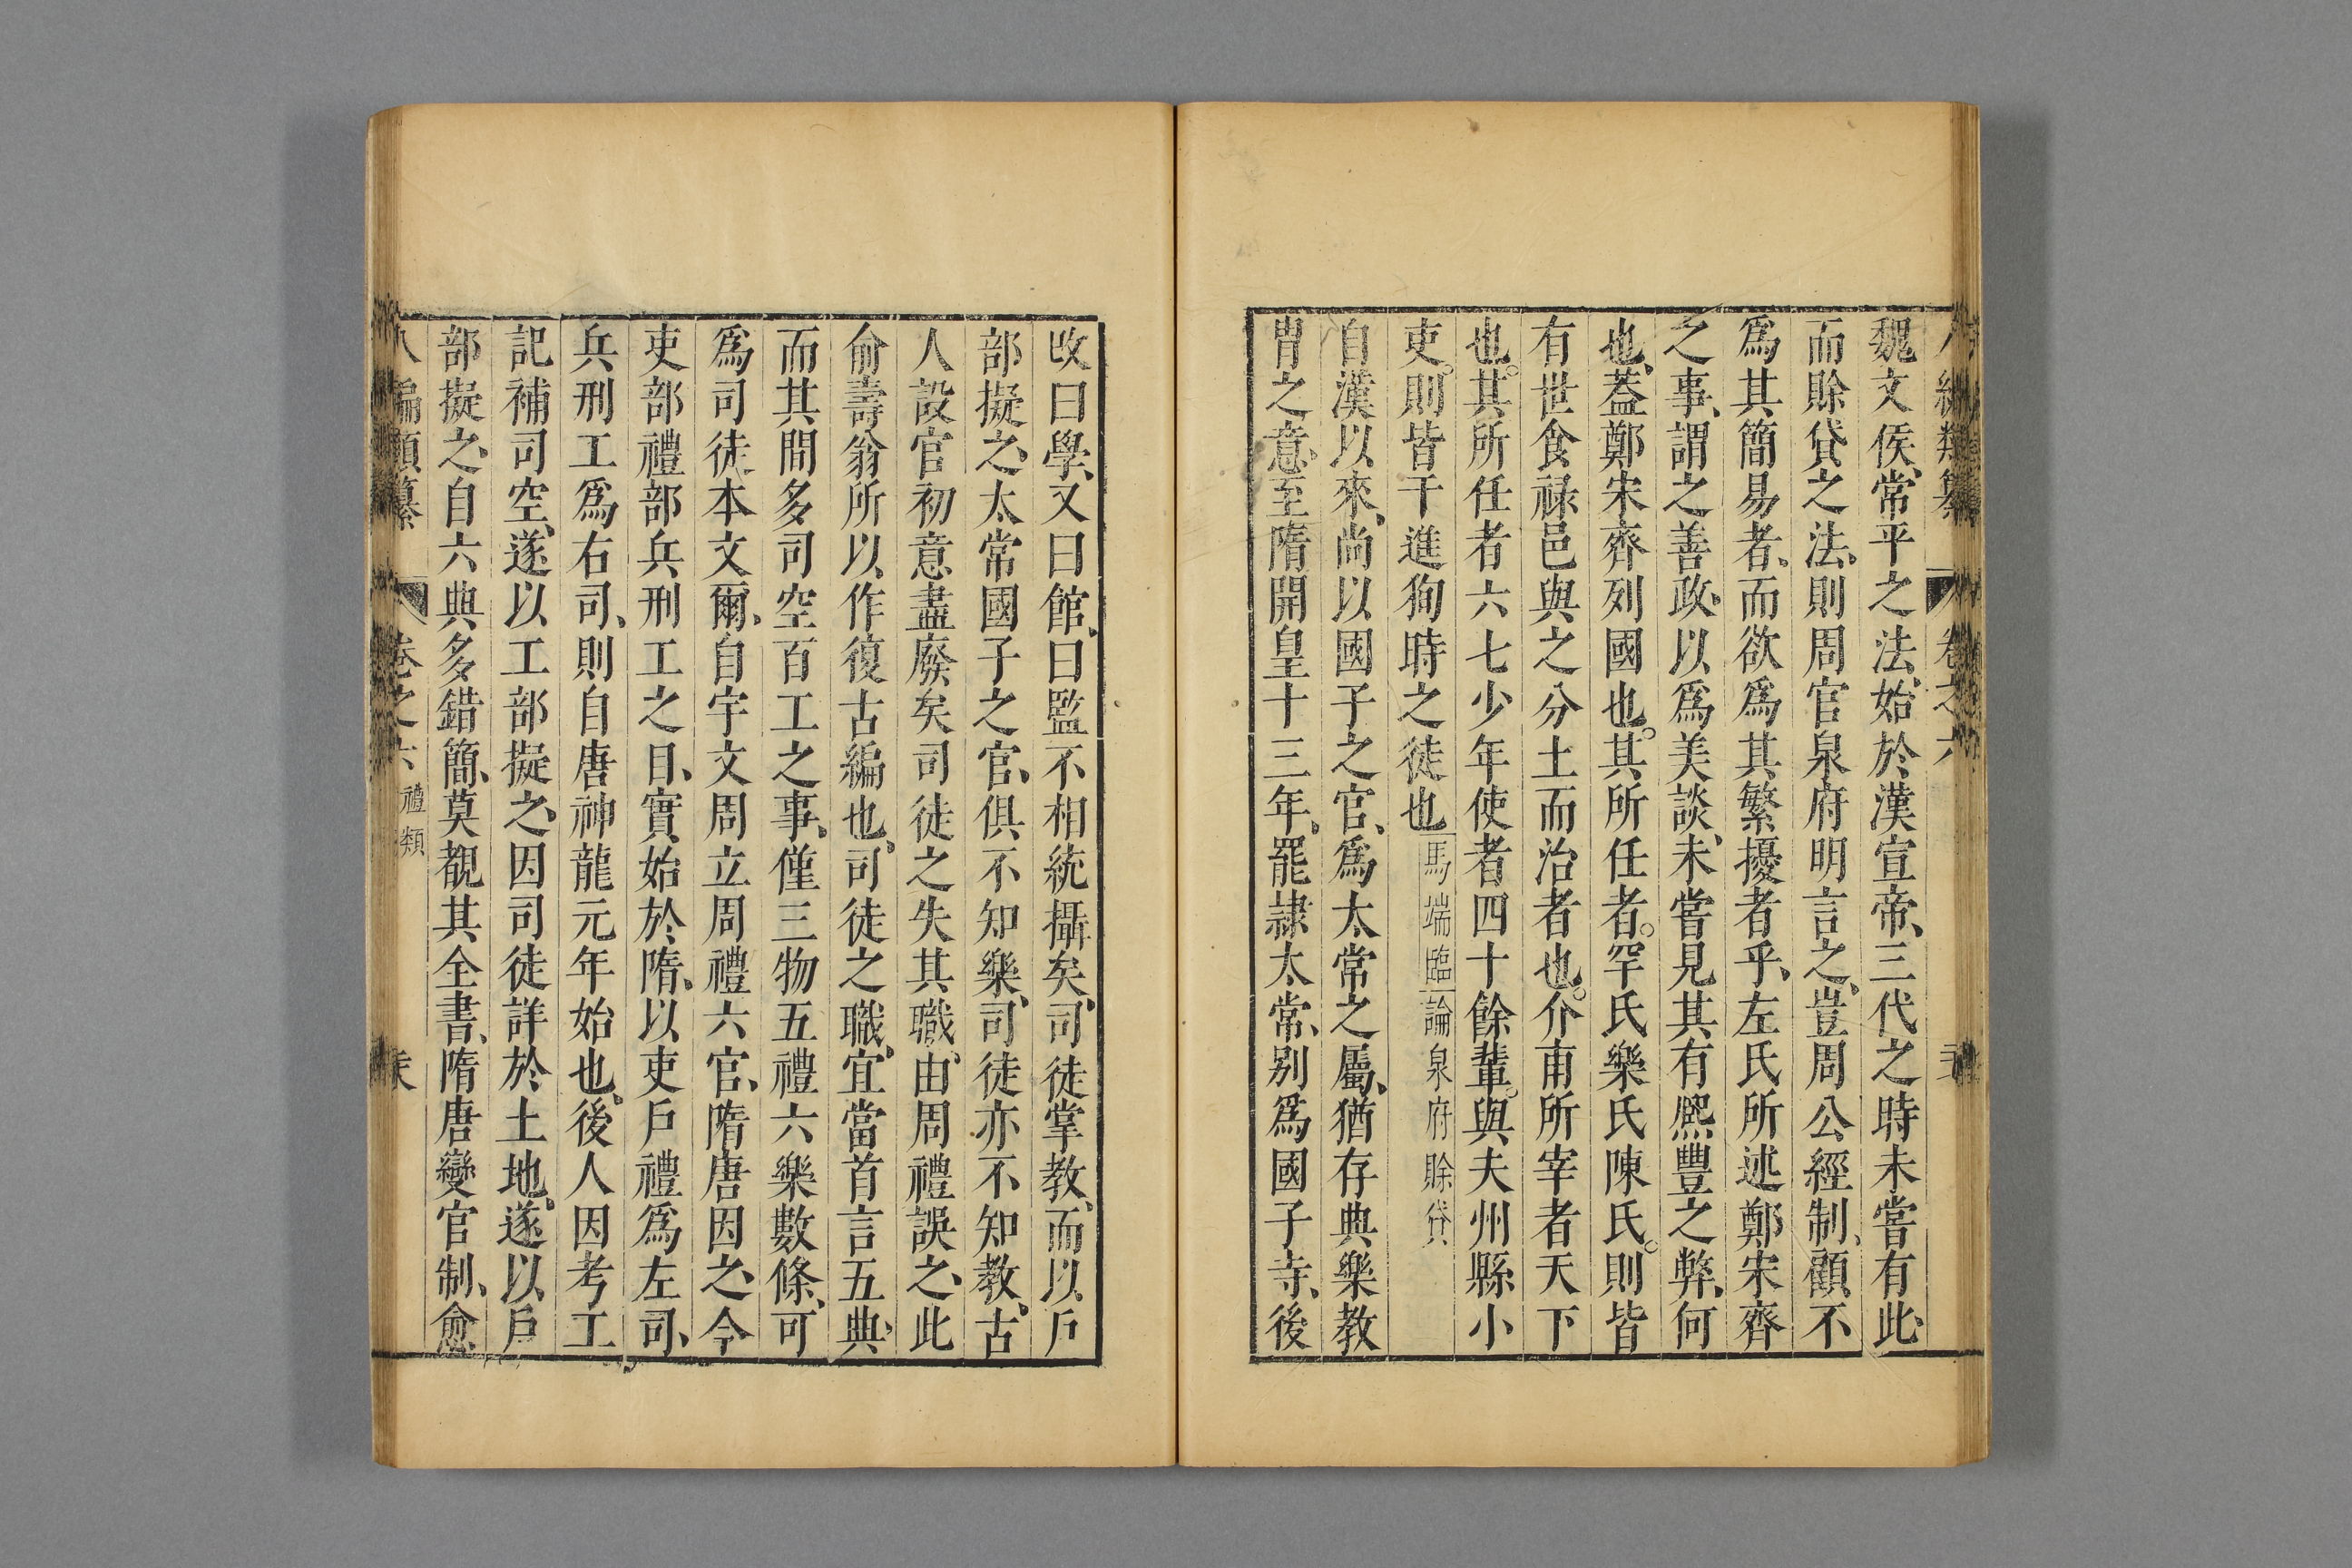 八編類纂 卷之六
魏文侯、常平之法、始於漢宣帝、三代之時未嘗有此、
而賒貸之法、則周官泉府明言之、豈周公經制、顧不
爲其簡易者、而欲爲其繁擾者乎、左氏所述鄭宋齊
之事、謂之善政、以爲美談、未嘗見其有熈豐之弊、何
也、蓋鄭宋齊列國也。其所任者。罕氏樂氏陳氏。則皆
有世食祿邑與之分土而治者也。介甫所宰者天下
也。其所任者六七少年使者四十餘輩。與夫州縣小
吏。則皆干進狥時之徒也 馬端臨論泉府賒貸
自漢以來、尚以國子之官、爲太常之屬、猶存典樂教
胄之意、至隋開皇十三年、罷隸太常、别爲國子寺、後
改曰學、又曰館、曰監不相統攝矣、司徒掌教、而以戶
部擬之、太常國子之官、俱不知樂、司徒亦不知教、古
人設官初意盡廢矣司徒之失其職、由周禮誤之、此
俞壽翁所以作復古編也、司徒之職、宜當首言五典、
而其間多司空百工之事、僅三物五禮六樂數條、可
爲司徒本文爾、自宇文周立周禮六官、隋唐因之、今
吏部禮部兵刑工之日、實始於隋、以吏戶禮爲左司、
兵刑工爲右司、則自唐神龍元年始也、後人因考工
記補司空、遂以工部擬之、因司徒詳於土地、遂以戶
部擬之、自六典多錯簡、莫覩其全書、隋唐變官制、愈
八編類纂 卷之六 禮類